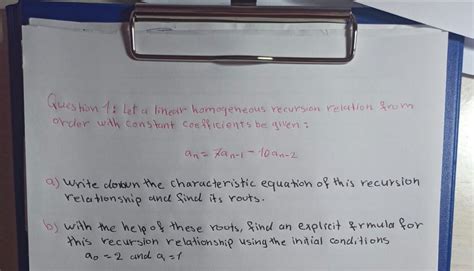 Question 1: Let a linear homogeneous recursion relation from
order with constant coefficients be given:
aₙ = 7aₙ₋₁ - 10aₙ₋₂
a) Write down the characteristic equation of this recursion
relationship and find its routs.
b) with the help of these roots, find an explicit frmula for
this recursion relationship using the initial conditions
a₀ = 2 and a₁ = 1